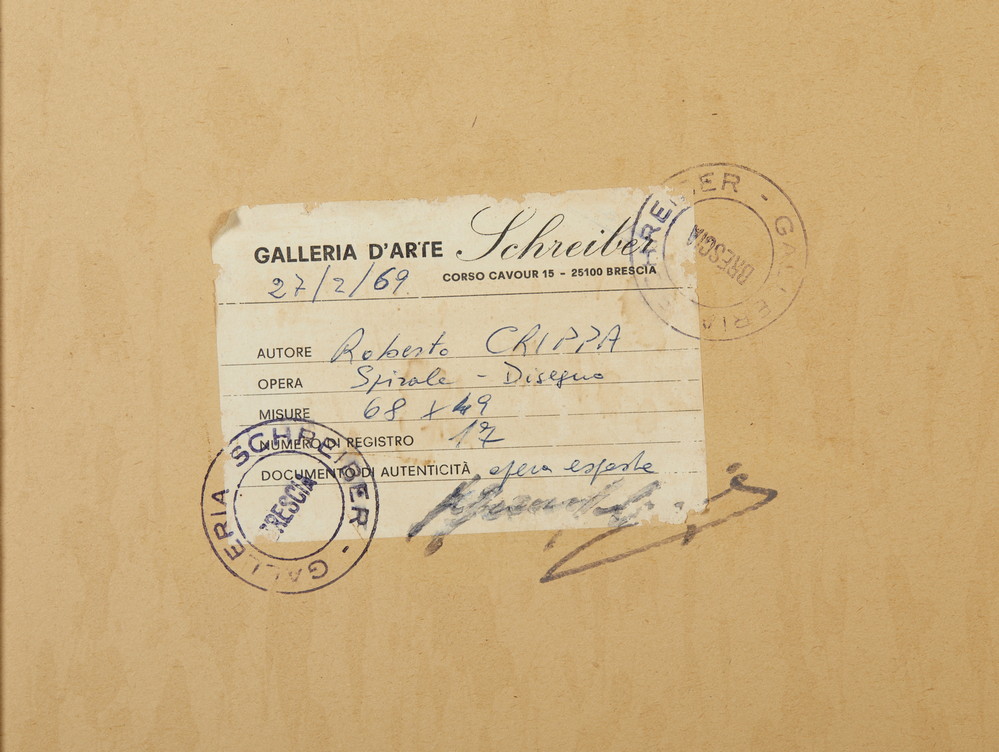 GALLERIA D'ARTE Schreiber
27/2/69 CORSO CAVOUR 15 - 25100 BRESCIA
AUTORE Roberto CRIPPA
OPERA Spirale - Disegno
MISURE 68 x 49
NUMERO DI REGISTRO 17
DOCUMENTO DI AUTENTICITÀ opera esposta
SCHREIBER - GALLERIA
BRESCIA
SCHREIBER - GALLERIA
BRESCIA